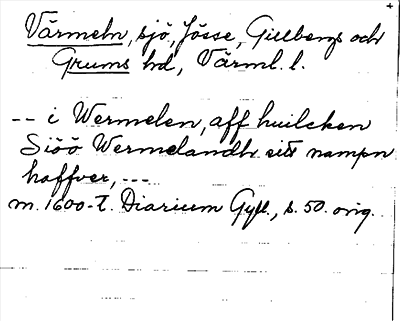 Värmeln, sjö, Jösse, Gillbergs och
Grums hd, Värml. l.
-- i Wermelen, aff huilcken
Siöö Wermelandh sitt nampn
haffver, ---
m. 1600-t. Diarium Gyll., s. 50. orig.